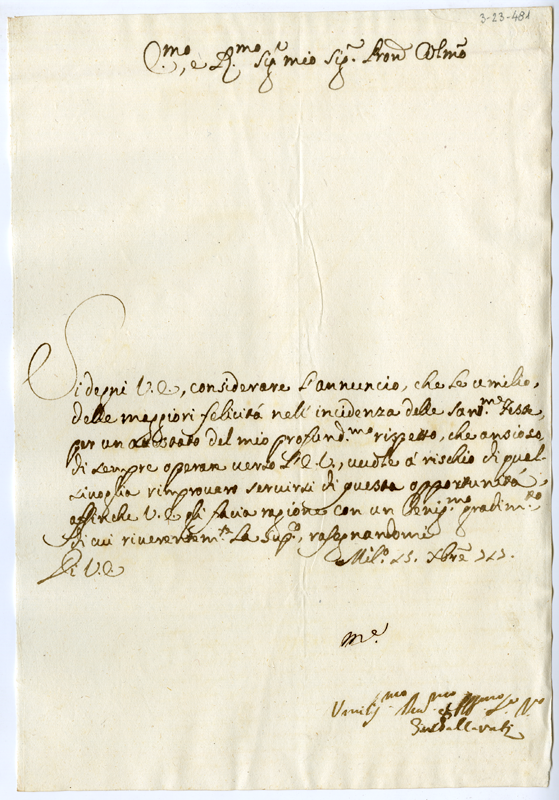 3-23-481
E.mo, e R.mo Sig.r mio Sig.r Pron Colmo
Si degni V.E., considerare l'annuncio, che le umilio,
delle maggiori felicità nell'incidenza delle sant.me Feste
per un attestato del mio profond.mo rispetto, che ansioso
di sempre operare verso l'E.V., vuole a rischio di qual
sivoglia rimprovero servirsi di questa opportunità,
affinche V.E. gli facia ragione con un benig.mo gradim.to
di cui riverentem.te la sup.co, rasegnandomi
Di V.E.
Mil.o 15. Xbre
Umilis.mo